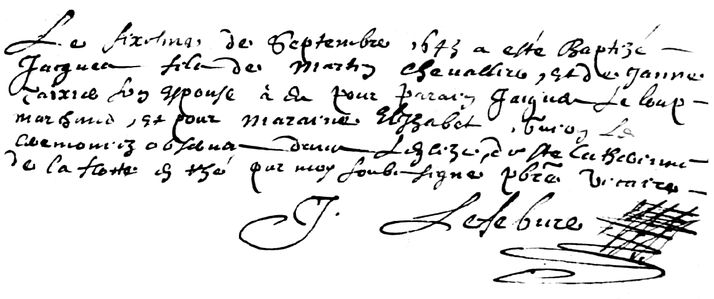 Le sixiesme de Septembre 1643 a esté Baptizé
Jacques fils de Martin Chevallier, et de Janne
son espouse à eu pour parain Jaques Le loup
marchand, et pour maraine Elizabet
ceremonies dans L'eglize de Ste Catherine
de la flotte en rhé par moy soubsigné pbre vicaire
J. Lefebure